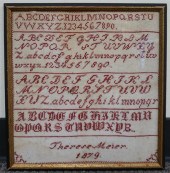 ABCDEFGHIKLMNOPQRSTU
VWXYZ. 1234567890.
ABCDEFGHIKLM
NOPQR STUVWXY
Z.abcdefghiklmnopqrstuv
wxyz.1234567890.
ABCDEFGHIKL
MNOPQRSTUVW
XYZ.abcdefghiklmnopqr
ABCDEFGHIKLM
NOPQRSTUVWXYZ.
Therese Meier
1879.